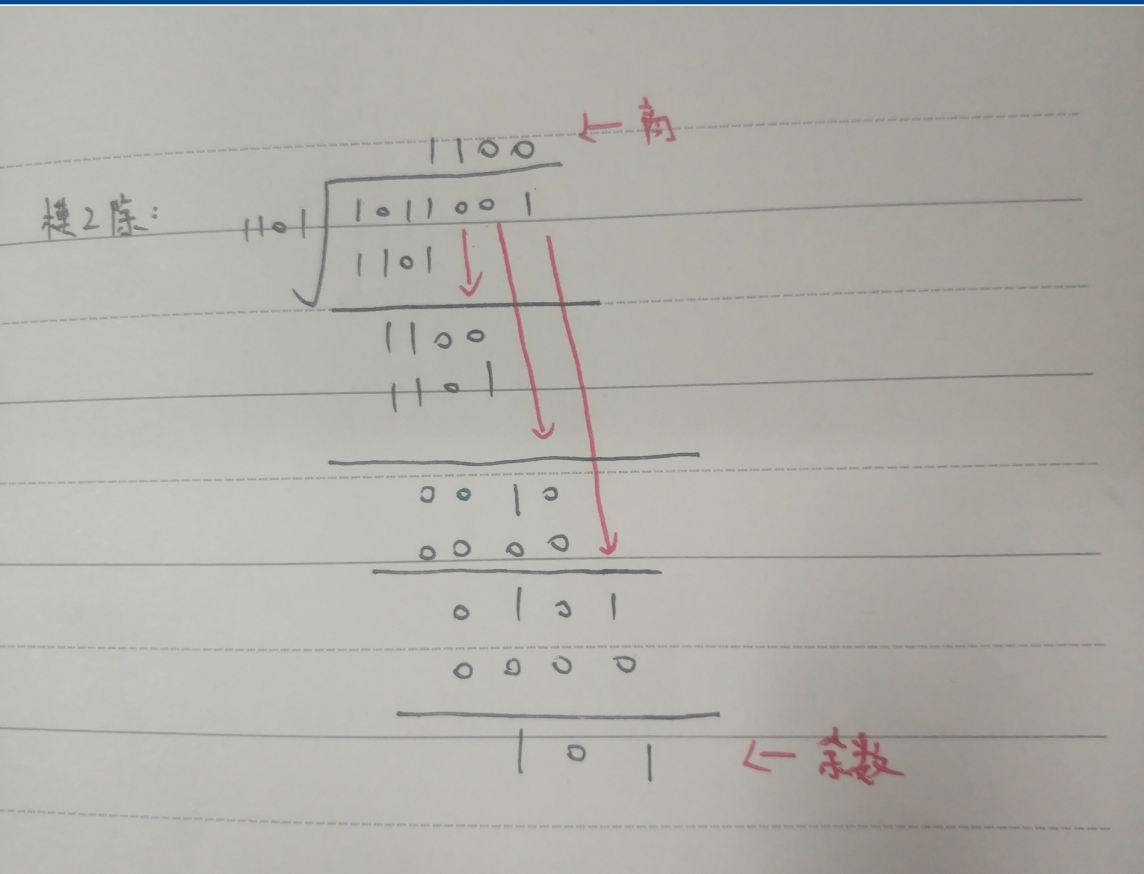 1100 ← 商
模2除: 1101 1011001
1101
1100
1101
0010
0000
0101
0000
101 ← 余数